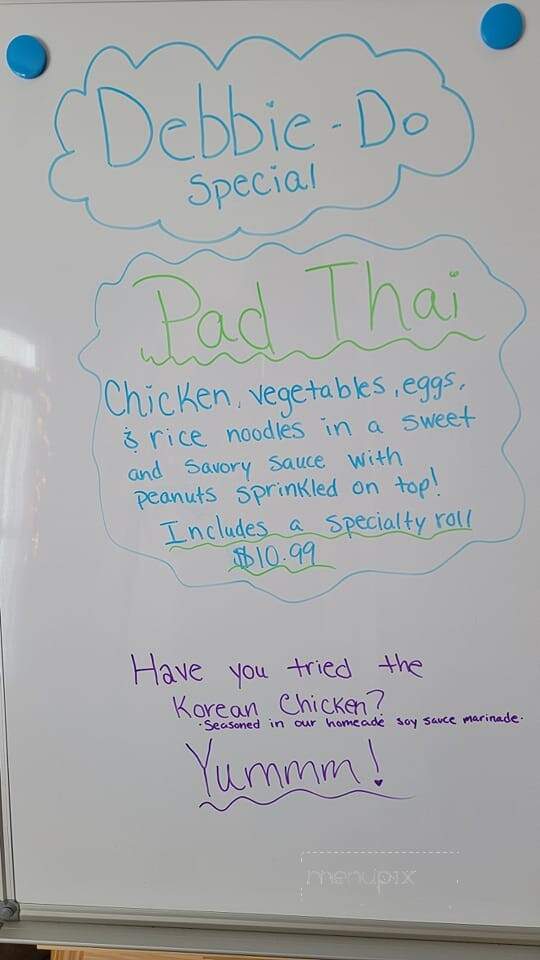 Debbie-Do
Special
Pad Thai
Chicken, vegetables, eggs,
& rice noodles in a sweet
and savory sauce with
peanuts sprinkled on top!
Includes a specialty roll
$10.99
Have you tried the
Korean Chicken?
·Seasoned in our homeade soy sauce marinade·
Yummm!
menupix